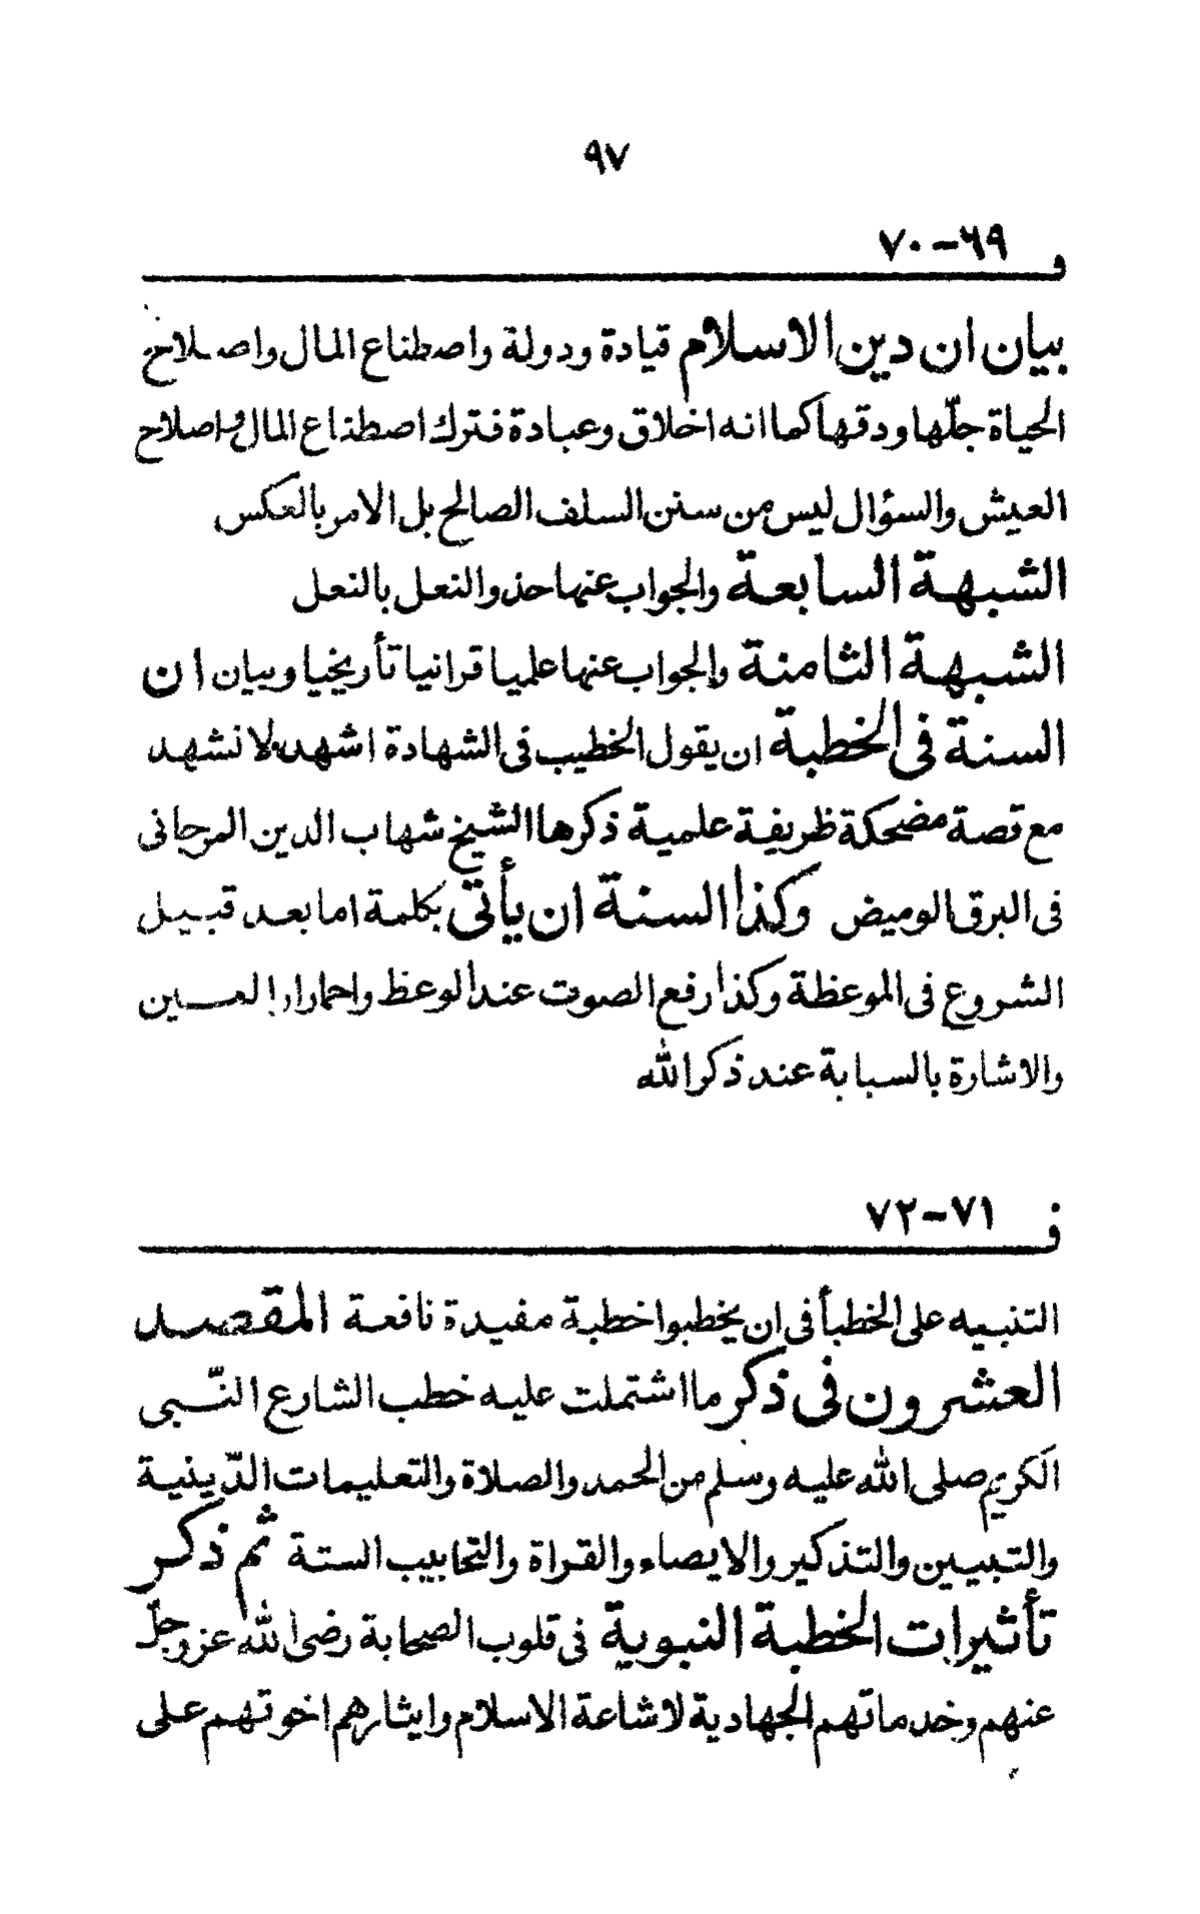 ٩٧
و ٦٩-٧٠
بيان ان دين الاسلام قيادة ودولة واصطناع المال واصلاح
الحياة جلّها ودقها كما انه اخلاق وعبادة فترك اصطناع المال واصلاح
العيش والسؤال ليس من سنن السلف الصالح بل الامر بالعكس
الشبهة السابعة والجواب عنها حذو النعل بالنعل
الشبهة الثامنة والجواب عنها علميا قرانيا تأريخيا وبيان ان
السنة فى الخطبة ان يقول الخطيب فى الشهادة اشهد لا نشهد
مع قصة مضحكة ظريفة علمية ذكرها الشيخ شهاب الدين المرجانى
فى البرق الوميض وكذا السنة ان يأتى بكلمة اما بعد قبيل
الشروع فى الموعظة وكذا رفع الصوت عند الوعظ واحمرار العين
والاشارة بالسبابة عند ذكر الله
ف ٧١-٧٢
التنبيه على الخطبأ فى ان يخطبوا خطبة مفيدة نافعة المقصد
العشرون فى ذكر ما اشتملت عليه خطب الشارع النّبى
الكريم صلى الله عليه وسلم من الحمد والصلاة والتعليمات الدّينية
والتبيين والتذكير والايصاء والقراة والتحابيب الستة ثم ذكر
تأثيرات الخطبة النبوية فى قلوب الصحابة رضى الله عز وجلّ
عنهم وخدماتهم الجهادية لاشاعة الاسلام وايثارهم اخوتهم على